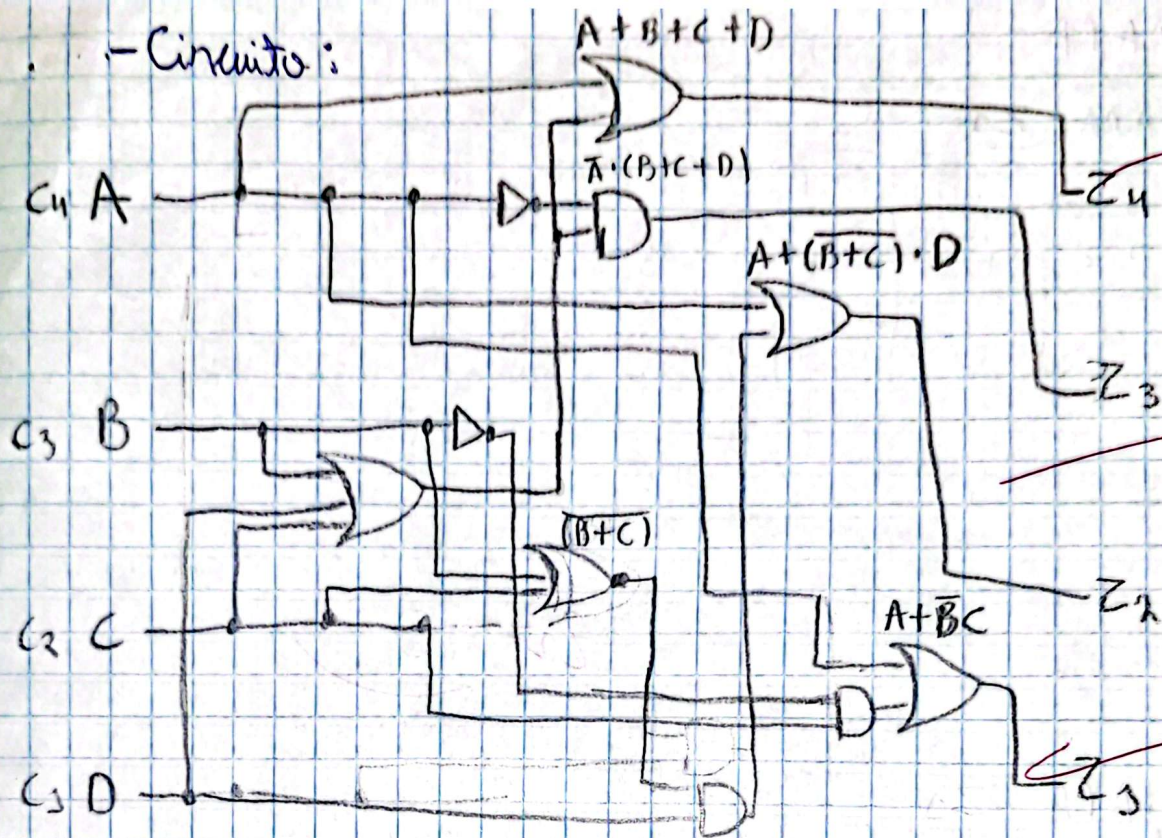 - Circuito:
A+B+C+D
C4 A
Ā·(B+C+D)
Z4
A+(\overline{B+C})·D
Z3
C3 B
(\overline{B+C})
Z2
C2 C
A+B̄C
C1 D